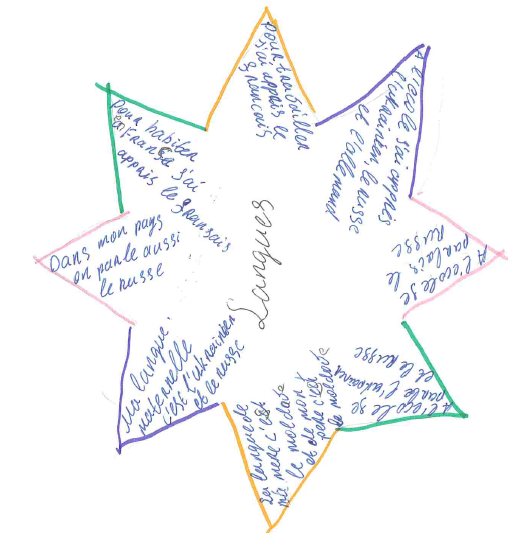 Langues
pour travailler
j'ai appris le
francais
A l'école j'ai appris
l'ukrainien, le russe
et l'allemand
A l'ecole je
parlais le
Russe
A l'ecole je
parle
et le Russe
langue de
mere c'est
le moldave
et de mon
pere c'est
le moldave
Ma langue
maternelle
c'est l'ukrainien
et le russe
Dans mon pays
on parle aussi
le russe
pour habiter
en France j'ai
appris le fransais